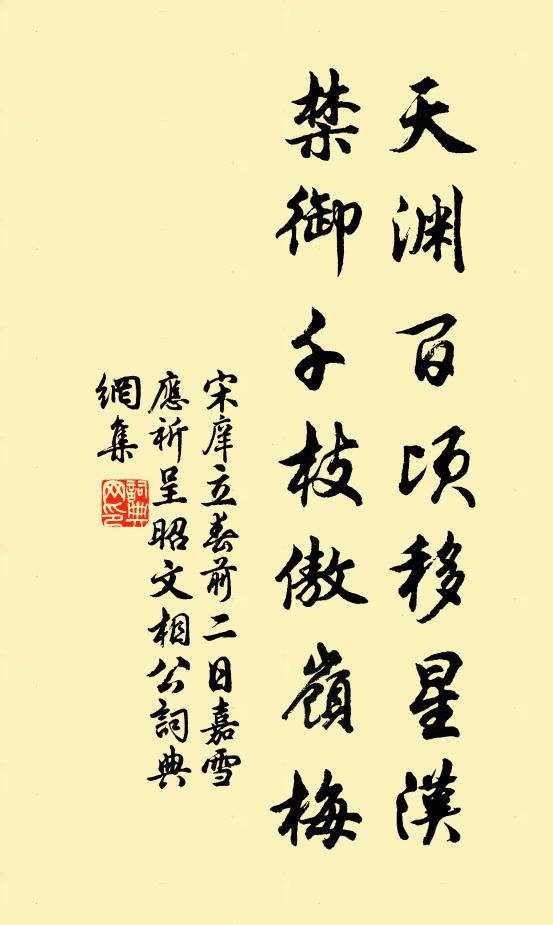 天渊百頃移星漢
禁御千枝傲嶺梅
宋庠立春前二日嘉雪
應祈呈昭文相公詞典
網集
詞典
网印